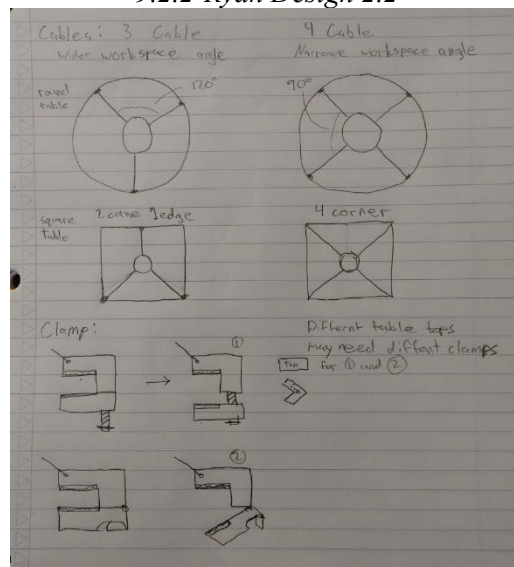 9.2.2 Ryan Design 2.2
Cables: 3 Cable
4 Cable
Wider workspace agle
Narrowe workspace angle
round
table
120°
90°
square
table
2 1edge
4 corner
Clamp:
①
Differnt table tops
may need diffent clamps
Top for ① and ②
②